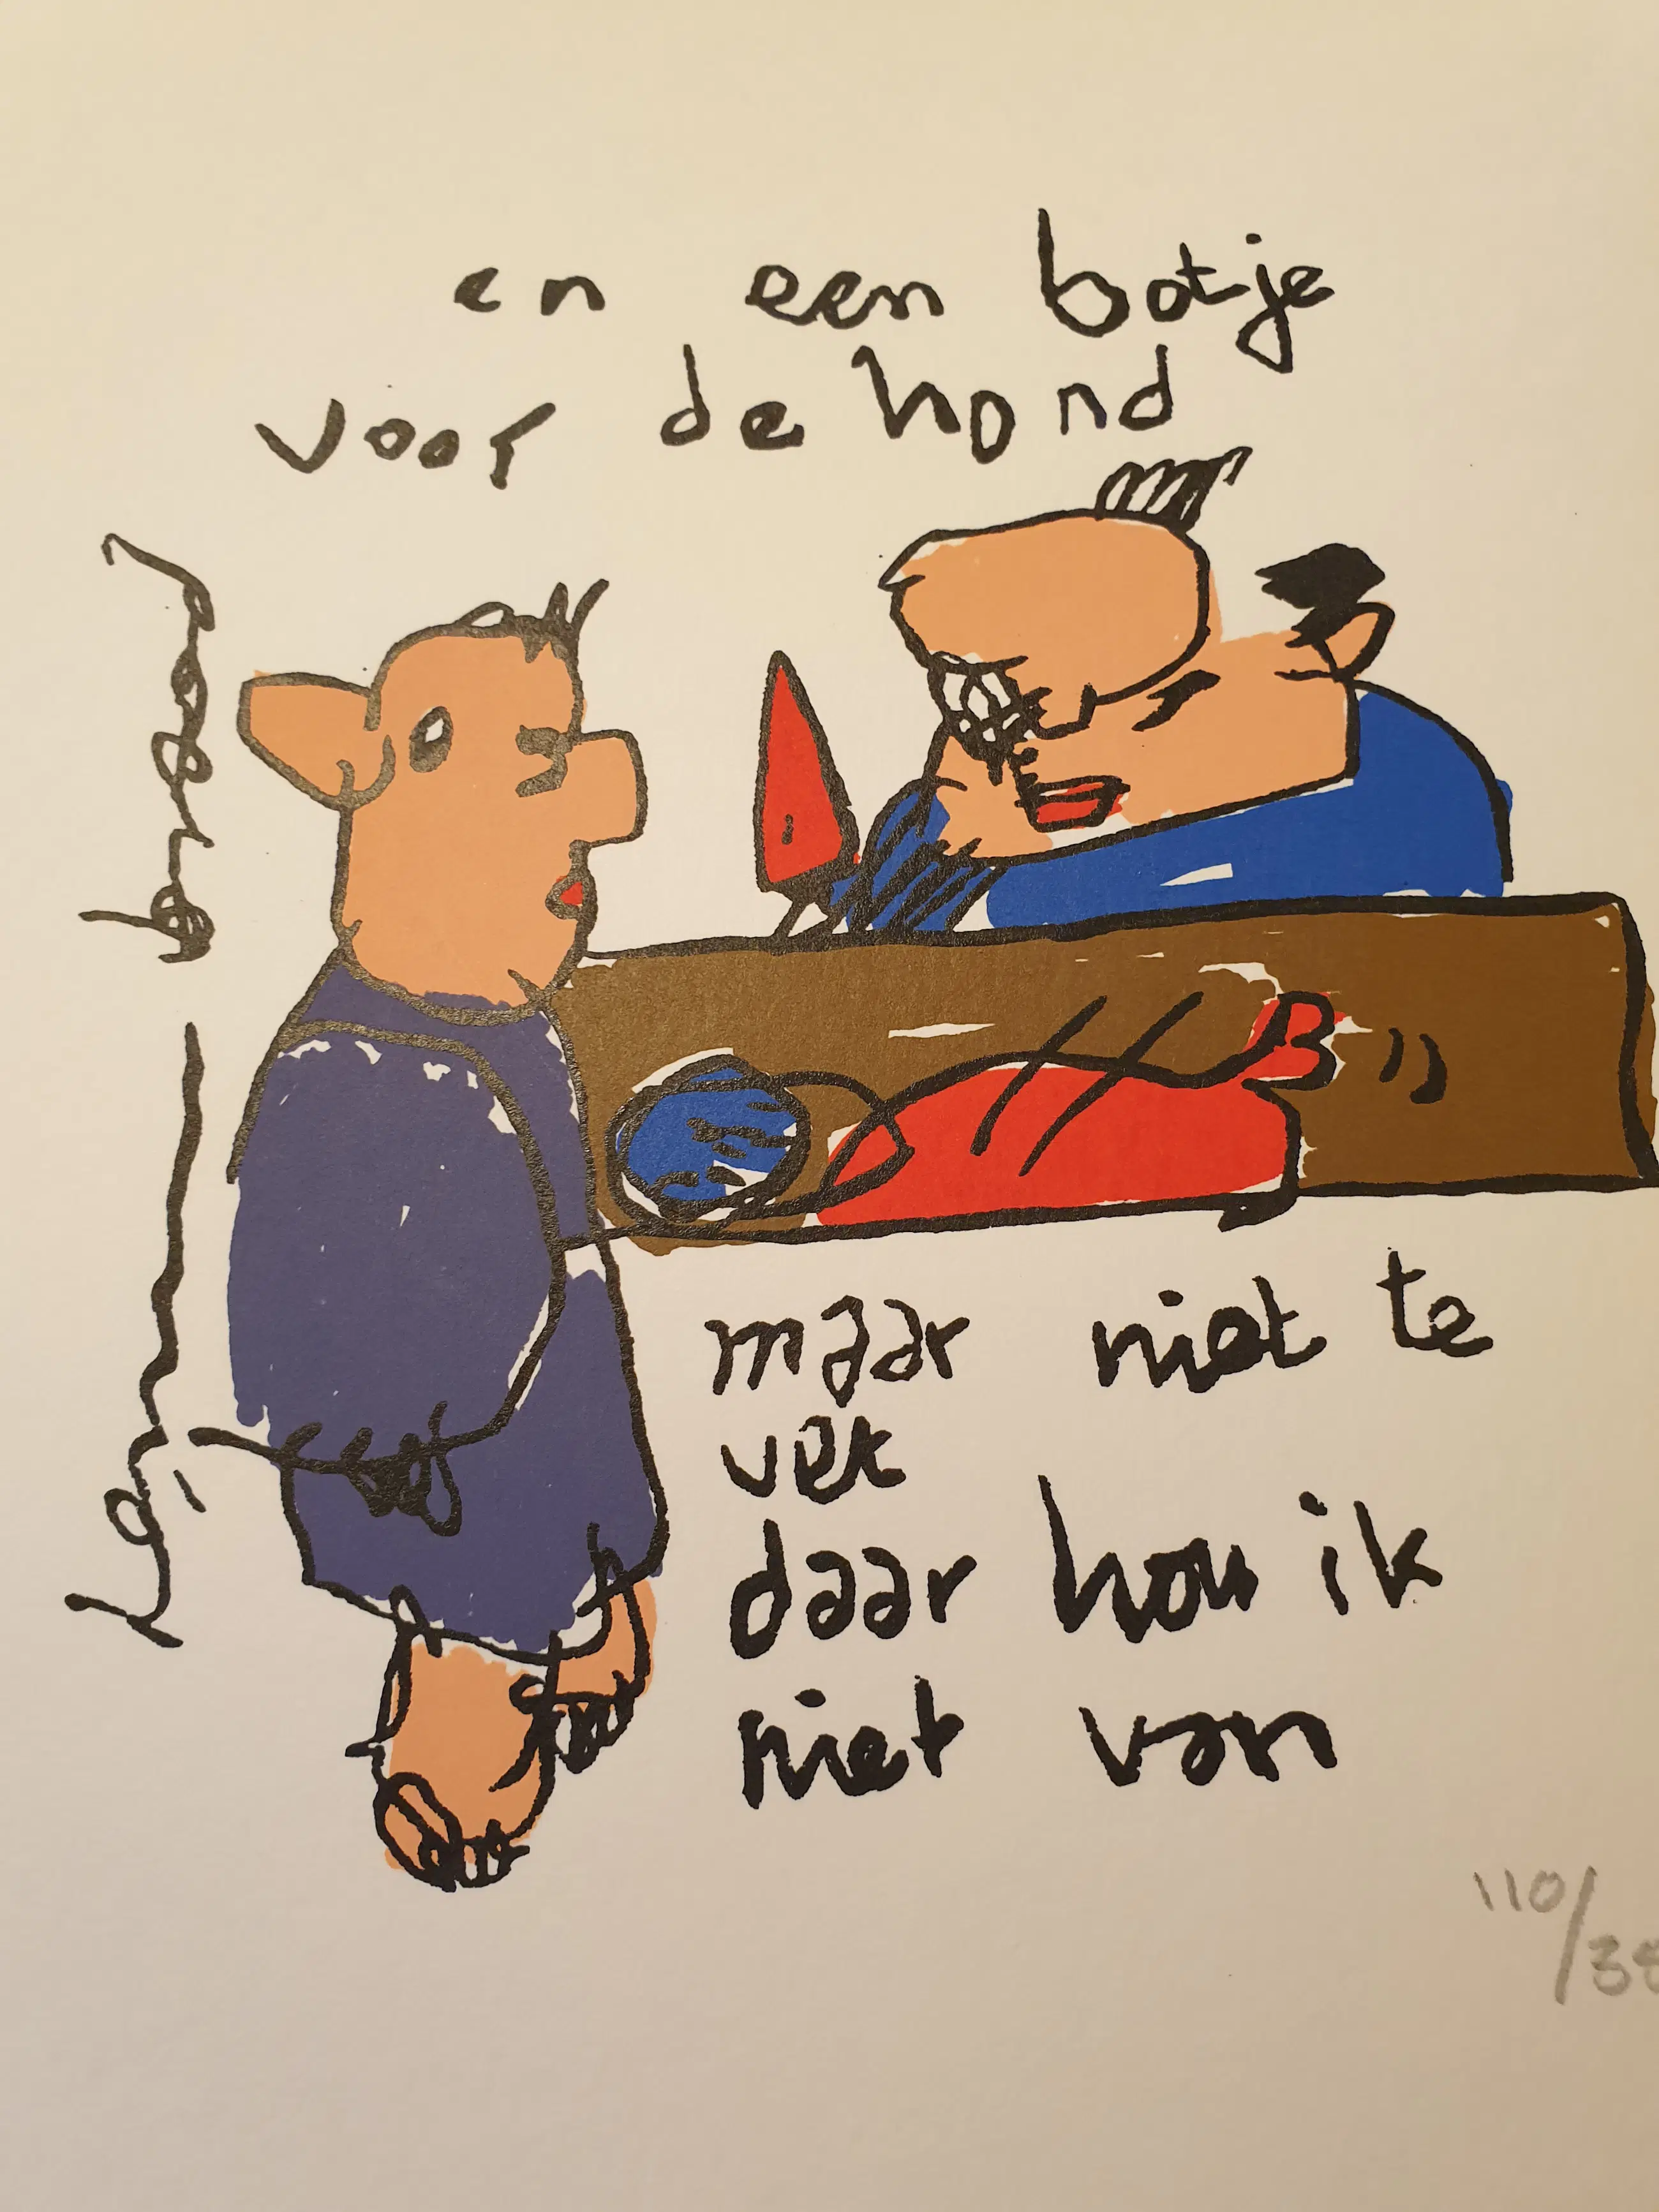 en een botje
voor de hond
maar niet te
vet
daar hou ik
niet van
110/